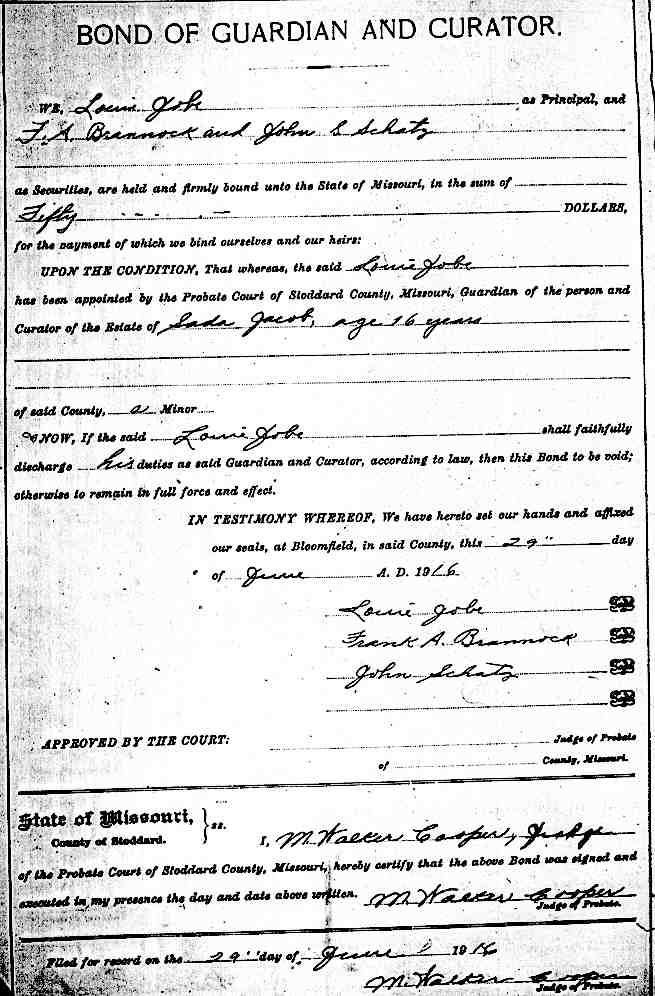 BOND OF GUARDIAN AND CURATOR.
WE, Louie Jobe as Principal, and
F. A. Brannock and John S Schatz
as Securities, are held and firmly bound unto the State of Missouri, in the sum of
Fifty DOLLARS,
for the payment of which we bind ourselves and our heirs:
UPON THE CONDITION, That whereas, the said Louie Jobe
has been appointed by the Probate Court of Stoddard County, Missouri, Guardian of the person and
Curator of the Estate of Sada Jacob, age 16 years
of said County, a Minor
NOW, If the said Louie Jobe shall faithfully
discharge his duties as said Guardian and Curator, according to law, then this Bond to be void;
otherwise to remain in full force and effect.
IN TESTIMONY WHEREOF, We have hereto set our hands and affixed
our seals, at Bloomfield, in said County, this 29" day
of June A. D. 1916
Louie Jobe
Frank A. Brannock
John Schatz
APPROVED BY THE COURT: Judge of Probate
of County, Missouri.
State of Missouri, } ss.
County of Stoddard.
I, M Walker Cooper, Judge
of the Probate Court of Stoddard County, Missouri, hereby certify that the above Bond was signed and
executed in my presence the day and date above written. M Walker Cooper
Judge of Probate.
Filed for record on the 29" day of June 1916
M. Walker Cooper
Judge of Probate.